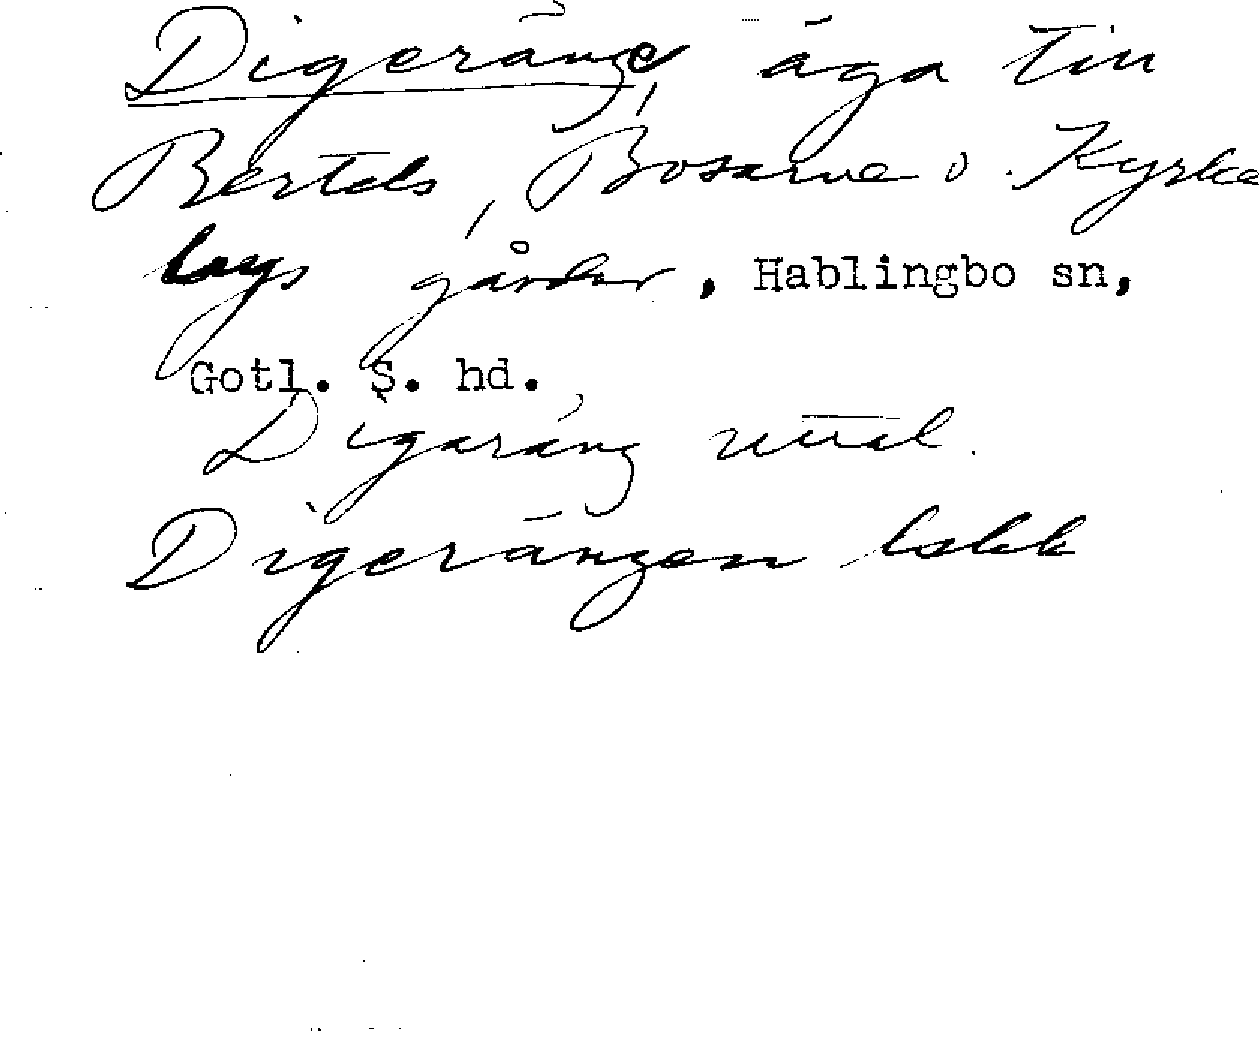 Digeränge, äga till
Bertels, Bosarve o. Kyrke
bys gårdar, Hablingbo sn,
Gotl. S. hd.
Digaräng uttal.
Digerängen lskk